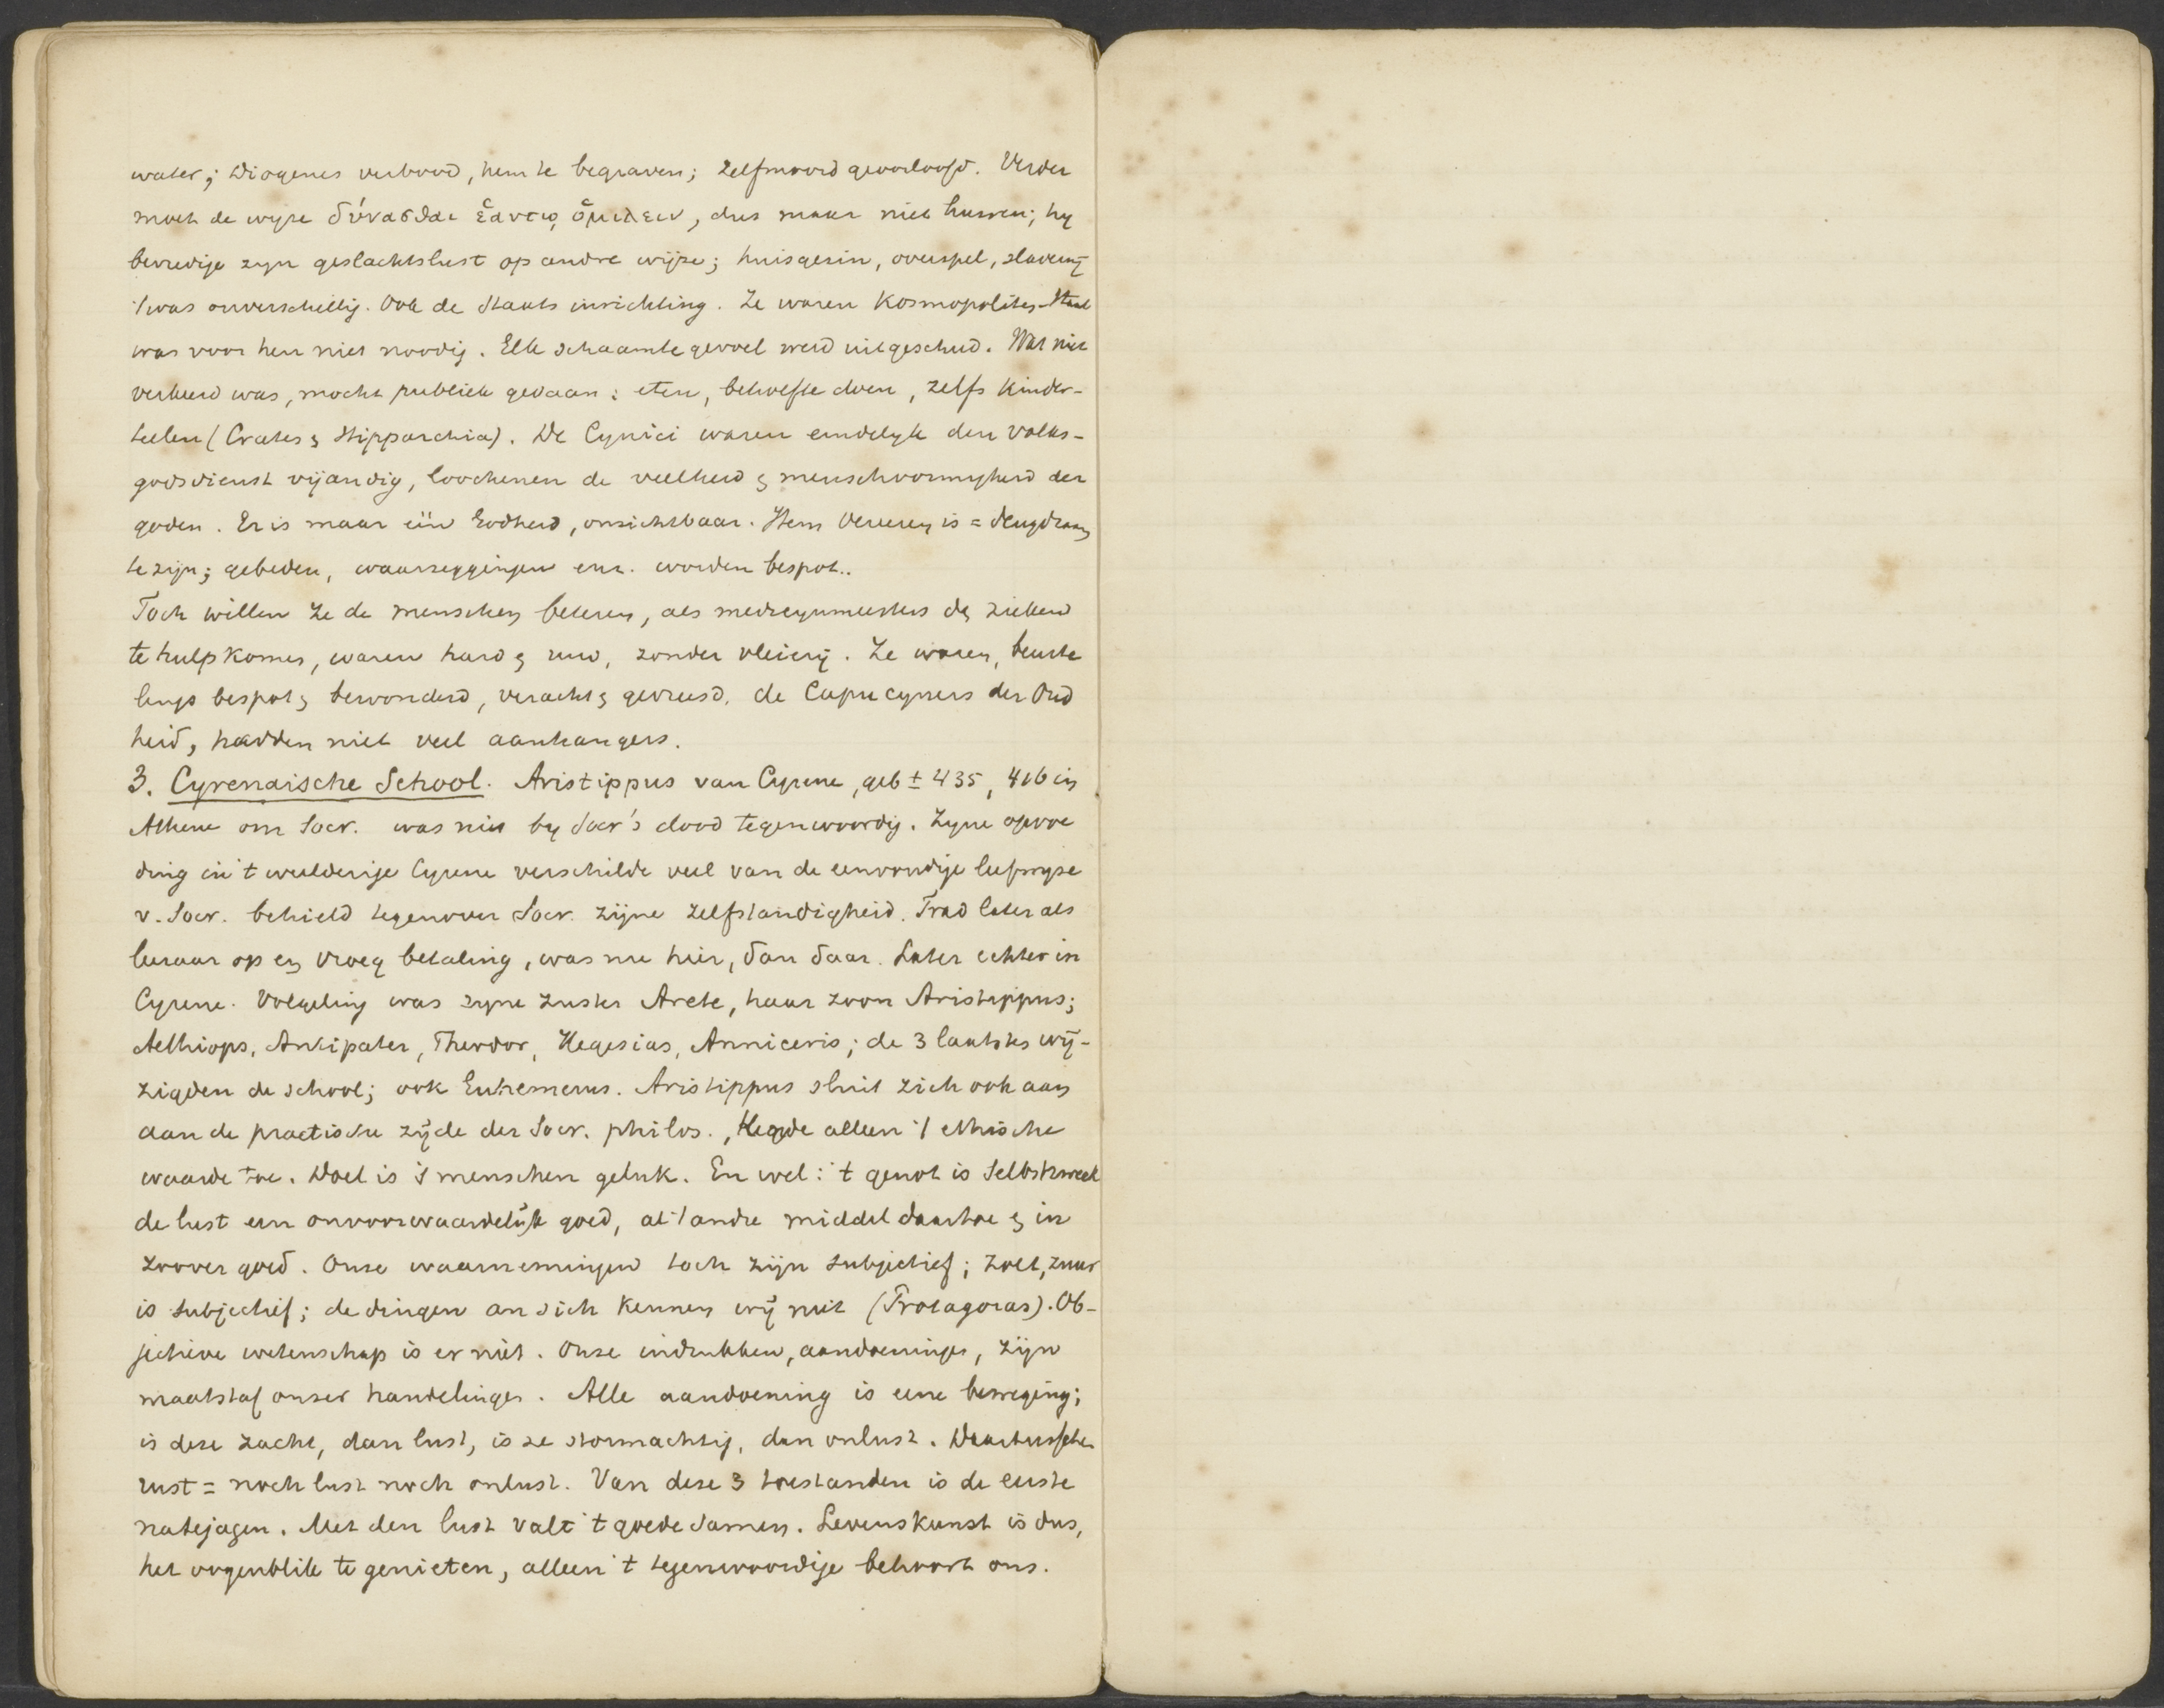 water; Diogenes verbood, hem te begraven; zelfmoord geoorloofd. Verder
moet de wyze δύνασθαι ἑαυτῳ ὁμιλειν, dus maar niet huwen; hy
bevredige zyn geslachtslust op andre wijze; huisgezin, overspel, slaverij
't was onverschillig. Ook de Staats inrichting. Ze waren Kosmopolites. Staat
was voor hen niet noodig. Elk schaamtegevoel werd uitgeschud. Wat niet
verkeerd was, mocht publiek gedaan: eten, behoefte doen, zelfs Kinder-
telen (Crates & Hipparchia). De Cynici waren eindelyk den Volks-
godsdienst vijandig, loochenen de veelheid & menschvormigheid der
goden. Er is maar één Godheid, onzichtbaar. Hem Vereren is = deugdzaam
te zijn; gebeden, waarzeggingen enz. worden bespot..
Toch willen ze de menschen beteren, als medicynmeesters de zieken
te hulp komen, waren hard & ruw, zonder vleierij. Ze waren, beurte
lings bespot & bewonderd, veracht & gevreesd, de Capucyners der Oud
heid, hadden niet veel aanhangers.
3. Cyrenaische School. Aristippus van Cyrene, geb ± 435, 416 in
Athene om Socr. was niet by Socr's dood tegenwoordig. Zyne opvoe
ding in 't weelderige Cyrene verschilde veel van de eenvoudige leefwyze
v. Socr. behield tegenover Socr. zijne zelfstandigheid. Trad later als
leeraar op en vroeg betaling, was nu hier, dan daar. Later echter in
Cyrene. Volgeling was zyne zuster Arete, haar zoon Aristippus;
Aethiops, Antipater, Theodor, Hegesias, Anniceris; de 3 laatstes wij-
zigden de school; ook Euhemerus. Aristippus sluit zich ook aan
aan de practische zijde der Socr. philos., Kegde alleen 't ethische
waarde toe. Doel is 's menschen geluk. En wel: 't genot is Selbstzweck
de lust een onvoorwaardelijk goed, al 't andre middel daartoe & in
zoover goed. Onze waarnemingen toch zijn subjectief; zoet, zuur
is subjectief; de dingen an sich kennen wij niet (Protagoras). Ob-
jectieve wetenschap is er niet. Onze indrukken, aandoeninges, zijn
maatstaf onzer handelinges. Alle aandoening is eene beweging;
is deze zacht, dan lust, is ze stormachtig, dan onlust. Daartusschen
rust = noch lust noch onlust. Van deze 3 toestanden is de eerste
natejagen. Met den lust valt 't goede samen. Levenskunst is dus,
het oogenblik te genieten, alleen 't tegenwoordige behoort ons.